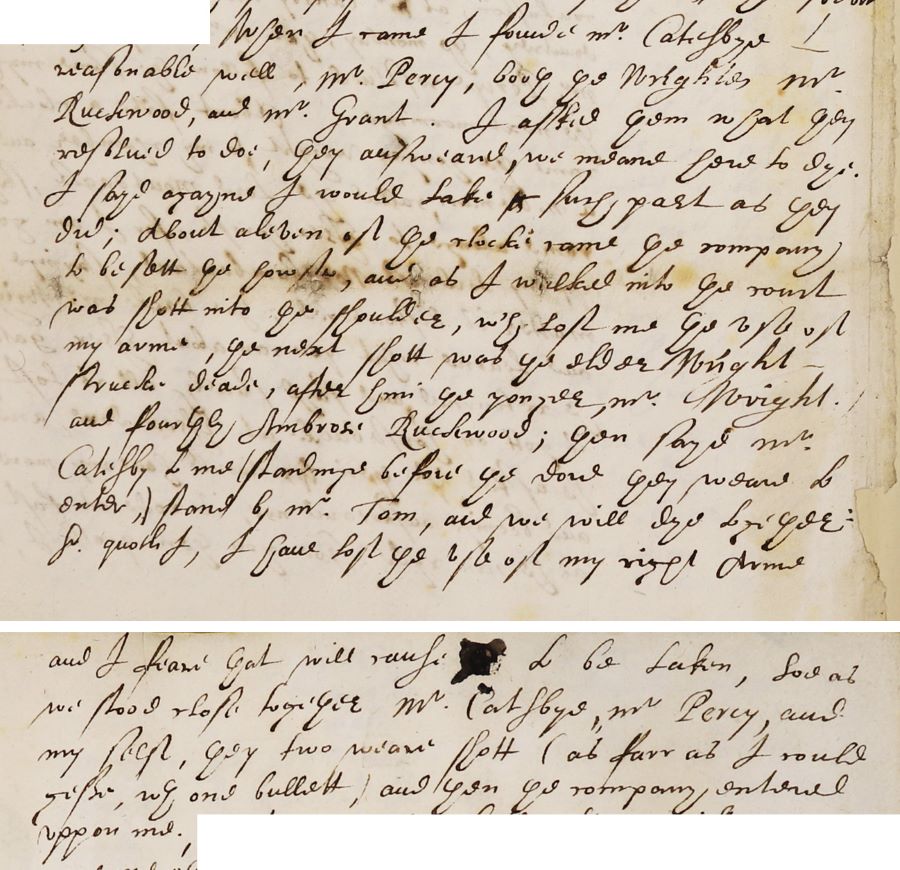 When I came I founde mr. Catesbye
reasonable well, mr. Percy, both ye Wrightes mr.
Ruckwood, and mr. Grant. I asked them what they
resolved to doe, they answeared, we meane here to dye.
I sayd agayne I would take such part as they
did; About aleven of the clocke came the company
to besett the howse, and as I walked into the court
was shott into the shoulder, wch lost me the use of
my arme, the next shott was the elder Wright
strucke deade, after him the yonger mr. Wright.
and fourthly Ambrose Ruckwood; then sayd mr.
Catesby to me (standinge before the dore they weare to
enter,) stand by mr. Tom, and we will dye together:
Sr. quoth I, I have lost the use of my right Arme
and I feare that will cause to be taken, soe as
we stood close together mr. Catsbye, mr Percy, and
my self, they two weare shott (as farr as I could
gesse, wth one bullett) and then the company entered
uppon me.